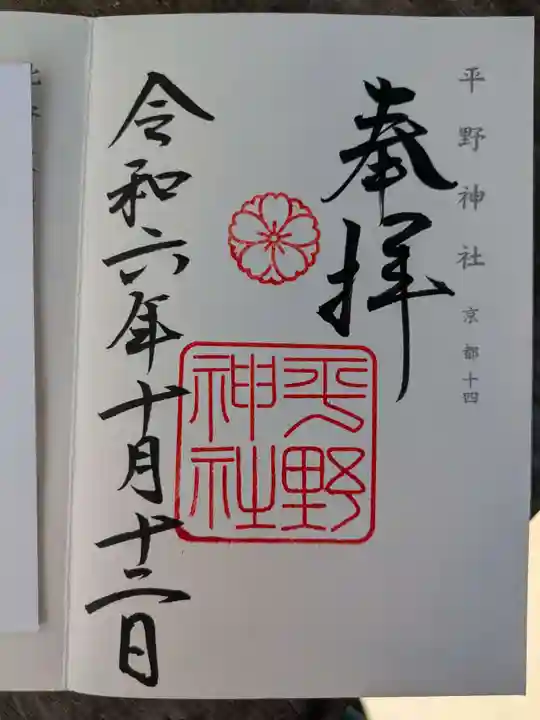 平野神社 京都十四
奉拝
平野
神社
令和六年十月十二日